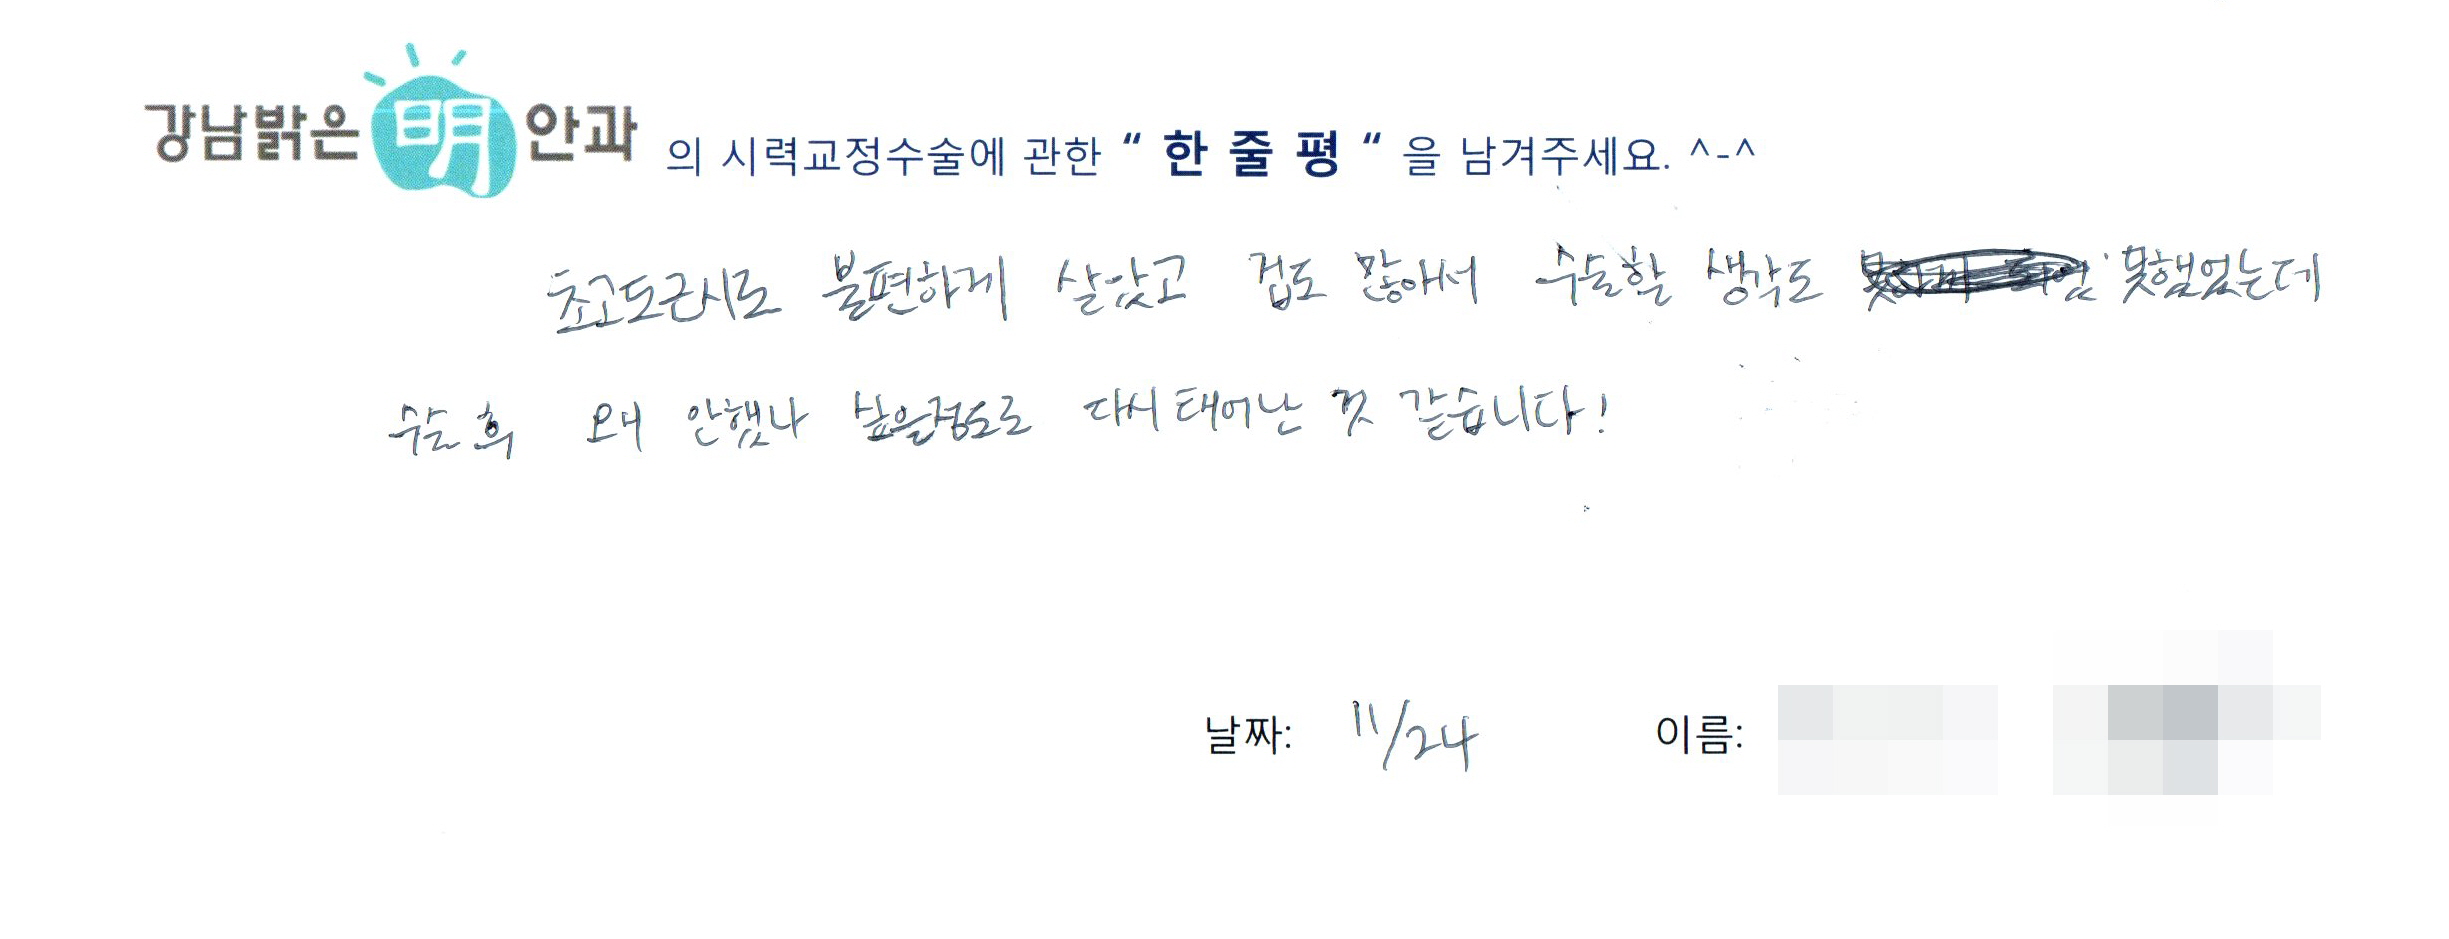 강남밝은明안과 의 시력교정수술에 관한 “ 한 줄 평 “ 을 남겨주세요. ^-^
초고도근시로 불편하게 살았고 겁도 많아서 수술할 생각도 못했었는데
수술 후 왜 안했나 싶을정도로 다시 태어난 것 같습니다!
날짜: 11/24 이름: